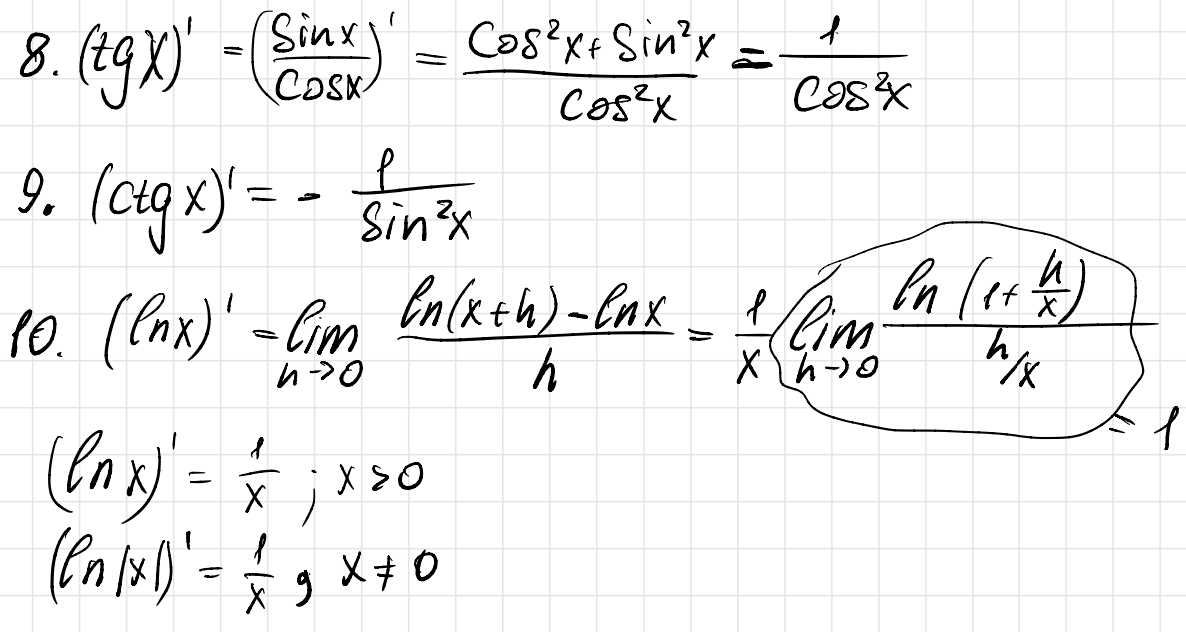 8. (tg x)' = (Sin x / Cos x)' = (Cos²x + Sin²x) / Cos²x = 1 / Cos²x
9. (ctg x)' = - 1 / Sin²x
10. (ln x)' = lim h→0 (ln(x+h) - ln x) / h = 1/x lim h→0 ln(1 + h/x) / h/x = 1
(ln x)' = 1/x ; x > 0
(ln |x|)' = 1/x , x ≠ 0